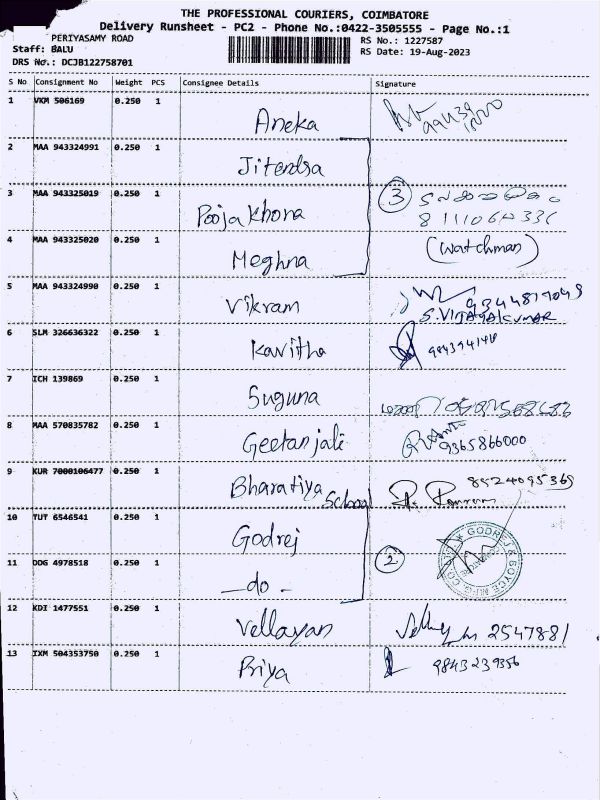 THE PROFESSIONAL COURIERS, COIMBATORE
Delivery Runsheet - PC2 - Phone No.:0422-3505555 - Page No.:1
PERIYASAMY ROAD
RS No.: 1227587
Staff: BALU
RS Date: 19-Aug-2023
DRS No.: DCJB122758701
S No Consignment No Weight PCS Consignee Details Signature
1 VKM 506169 0.250 1 Aneka
2 MAA 943324991 0.250 1 Jitendra
3 MAA 943325019 0.250 1 Pooja Khona 3
4 MAA 943325020 0.250 1 Meghna (Watchman)
5 MAA 943324990 0.250 1 Vikram 9344819049
S. VIJAYAKUMAR
6 SLM 326636322 0.250 1 Kavitha
7 ICH 139869 0.250 1 Suguna
8 MAA 570835782 0.250 1 Geetanjali 9365866000
9 KUR 7000106477 0.250 1 Bharatiya School 8524095369
10 TUT 6546541 0.250 1 Godrej
11 OOG 4978518 0.250 1 -do- 2
GODREJ & BOYCE MFG. CO. LTD.
12 KDI 1477551 0.250 1 Vellayan 2547881
13 IXM 504353750 0.250 1 Priya 9843239356